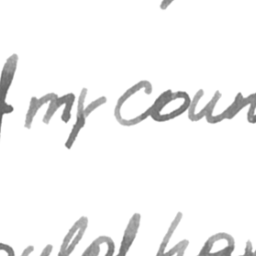 my coun
ould hav